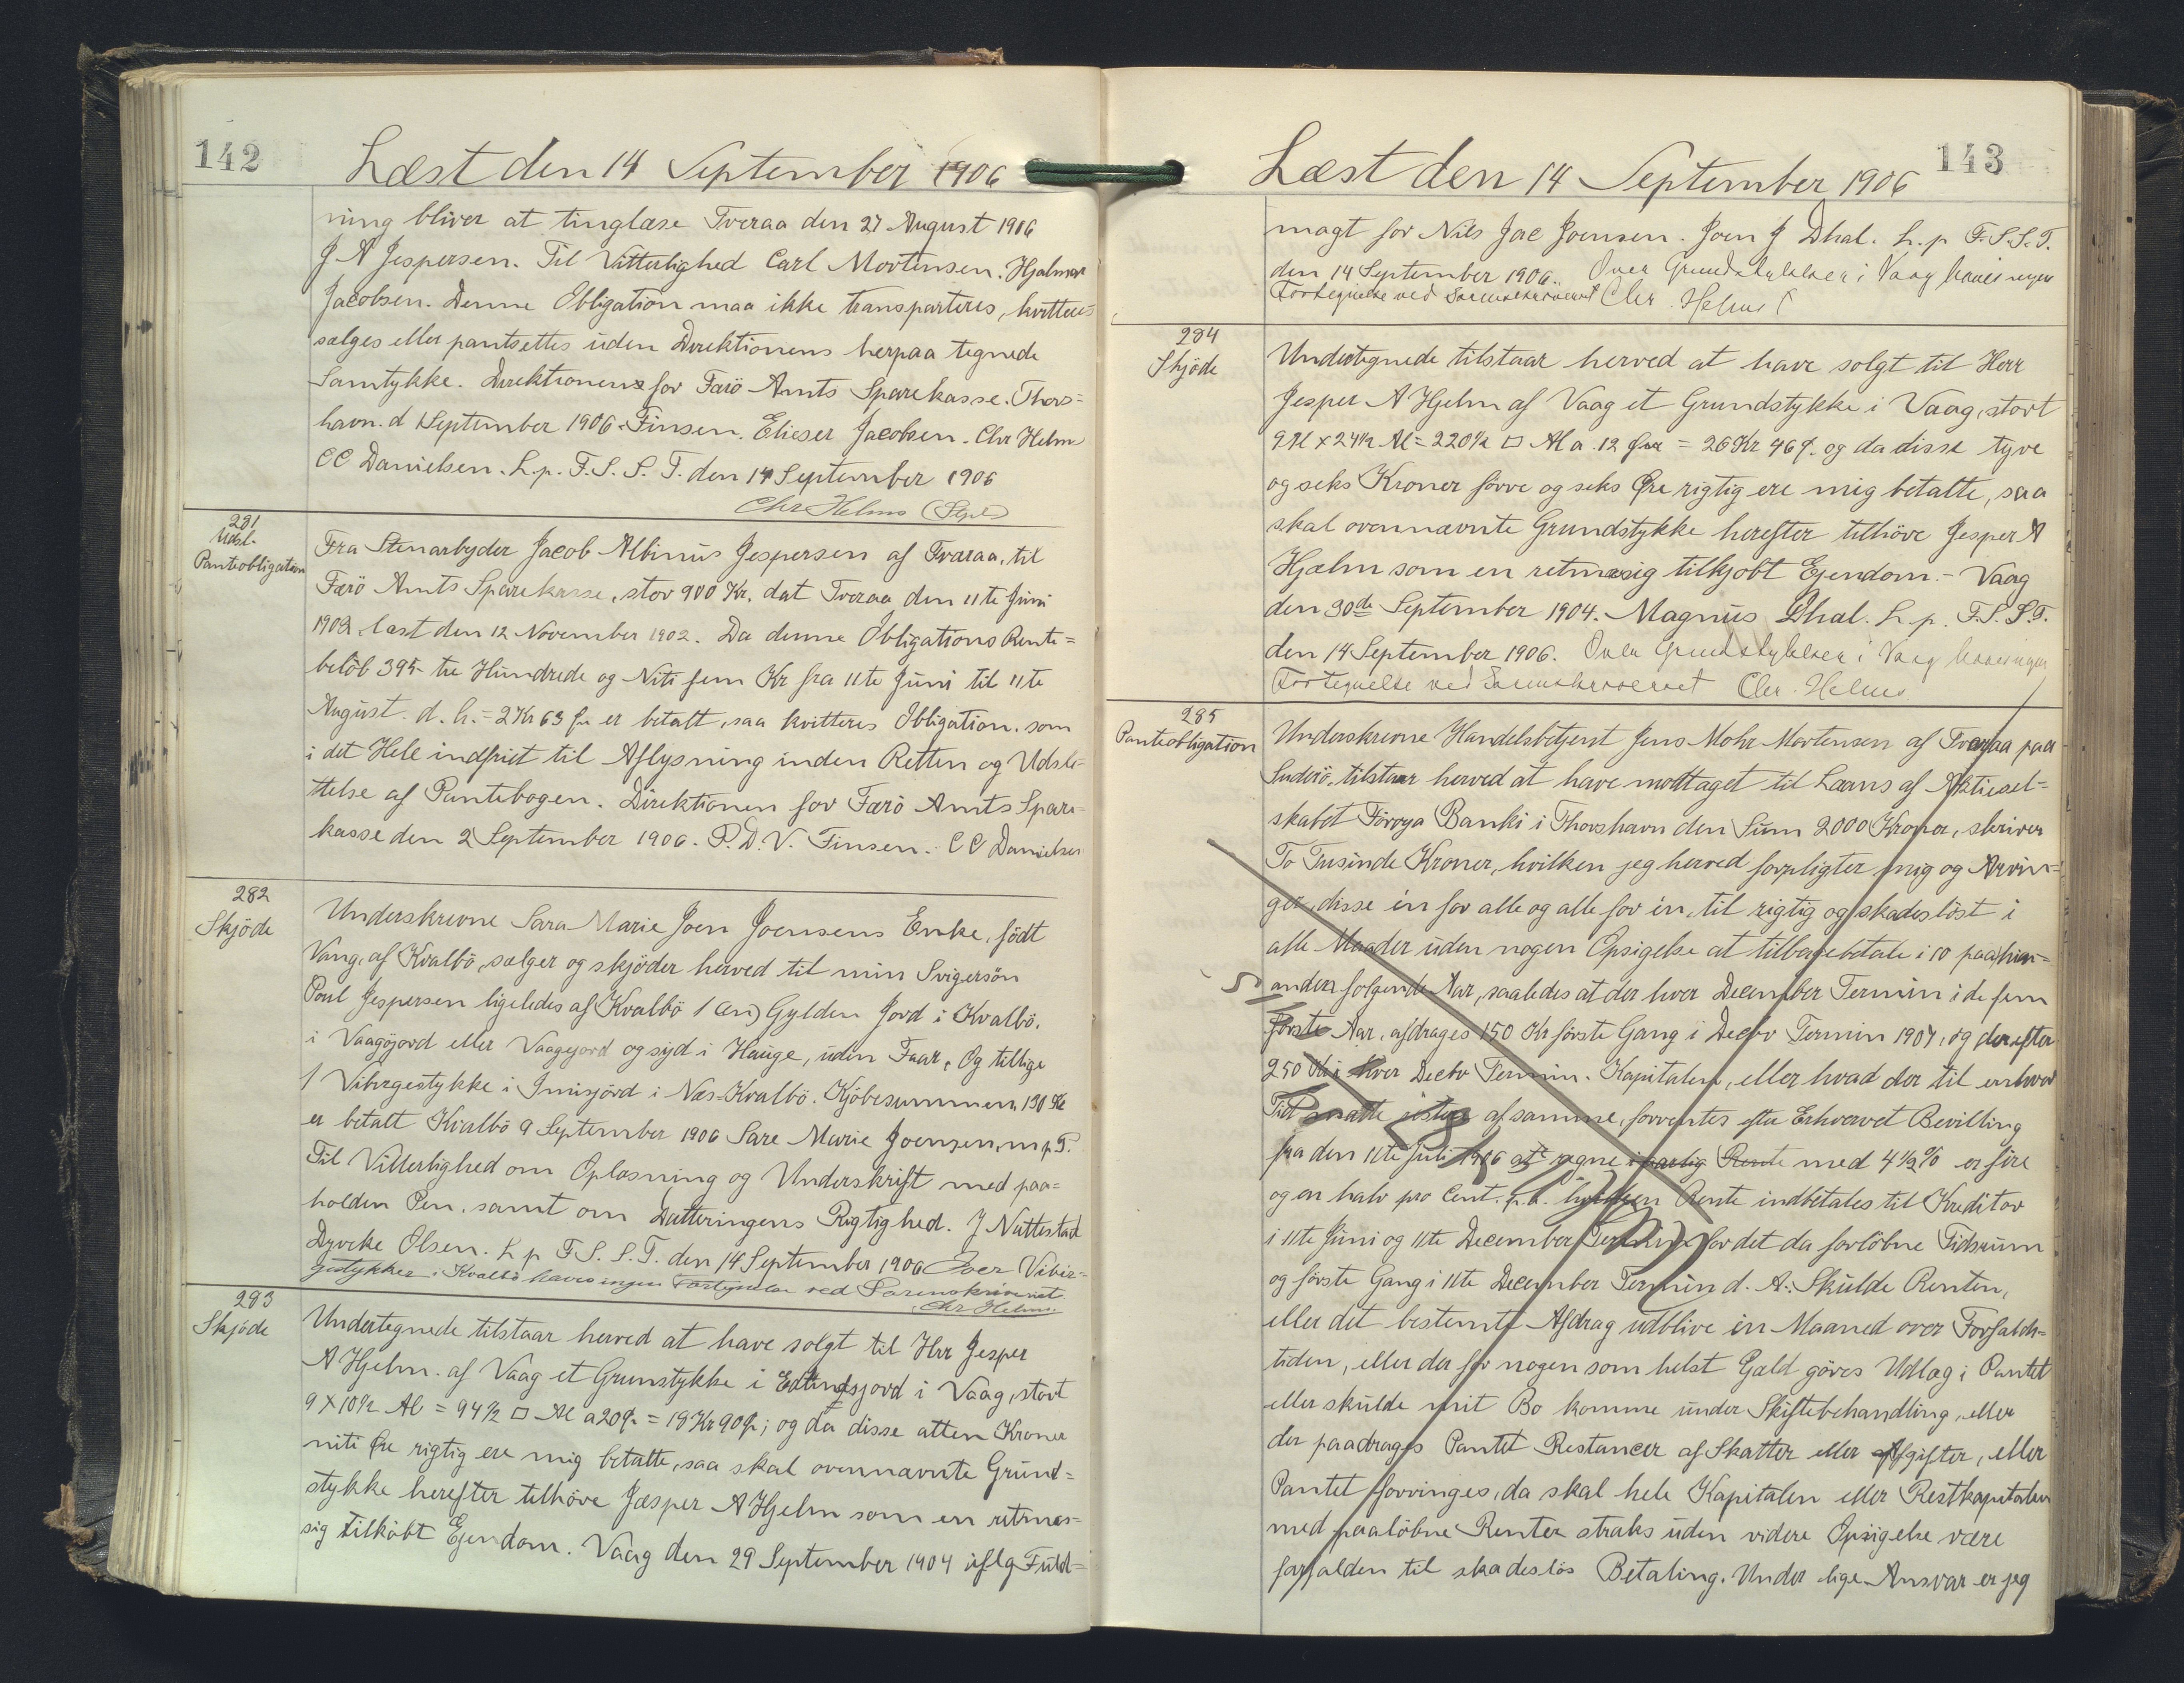 142
Læst den 14 September 1906
ning bliver at tinglæse Tveraa den 27 August 1906
J A Jespersen. Til Vitterlighed Carl Mortensen. Hjalmar
Jacobsen. Denne Obligation maa ikke transporteres, kvitteres
sælges eller pantsettes uden Direktionens herpaa tegnede
Samtykke. Direktionens for Færö Amts Sparekasse. Thors=
havn. d 1 September 1906. Finsen. Elieser Jacobsen. Chr Helm
CC Danielsen. L.p. F.S.S.T. den 14 September 1906
Chr Helms
281
Udsl.
Panteobligation
Fra Stenarbyder Jacob Albinus Jespersen af Tværaa, til
Færö Amts Sparekasse, stor 900 Kr, dat Tveraa den 11te Juni
1902, læst den 12 November 1902. Da denne Obligations Rente=
belöb 395 tre Hundrede og Niti fem Kr fra 11te Juni til 11te
August. d. h. = 2 Kr 63 Ør er betalt, saa kvitteres Obligation. som
i det Hele indfriet til Aflysning inden Retten og Udsle-
ttelse af Pantebogen. Direktionen for Færö Amts Spare-
kasse den 2 September 1906. P.D.V. Finsen. CC Danielsen
282
Skjöde
Underskrevne Sara Marie Joen Joensens Enke, födt
Vang, af Kvalbö, sælger og skjöder herved til min Svigersön
Poul Jespersen ligeledes af Kvalbö 1 (en) Gylden Jord i Kvalbö,
i Vaagöjord eller Vaagejord og syd i Hauge, uden Faar, Og tillige
1 Vibirgestykke i Innisjörd i Næs-Kvalbö. Kjöbesummen 130 Kr
er betalt Kvalbö 9 September 1906 Sare Marie Joensen, m.p.P.
Til Vitterlighed om Oplæsning og Underskrift med paa=
holden Pen, samt om Datteringens Rigtighed. J Nattestad
Dyveke Olsen. L p F.S.S.T. den 14 September 1906 Over Vibir=
gestykker i Kvalbö haves ingen Fortegnelse ved Sorenskriveriet
Chr Helms.
283
Skjöde
Undertegnede tilstaar herved at have solgt til Herr Jesper
A Hjelm. af Vaag et Grunstykke i jord i Vaag, stort
9 X 10½ Al = 94½ □ Al a 20 Ø. = 18 Kr 90 Ø; og da disse atten Kroner
niti Øre rigtig ere mig betalte, saa skal ovennævnte Grund=
stykke herefter tilhöve Jesper A Hjelm som en retmæs=
sig tilköbt Ejendom. Vaag den 29 September 1904 iflg Fuld=
143
Læst den 14 September 1906
magt for Nils Jac Joensen. Joen J Dhal. L.p F.S.S.T.
den 14 September 1906. Over Grundstykker i Vaag haves ingen
Fortegnelse ved Sorenskriveriet Chr. Helms
284
Skjöde
Undertegnede tilstaar herved at have solgt til Herr
Jesper A Hjelm af Vaag et Grundstykke i Vaag, stort
9 Al x 24½ Al = 220½ □ Al a. 12 Ør = 26 Kr 46 Ø. og da disse tyve
og seks Kroner förre og seks Øre rigtig ere mig betalte, saa
skal ovennævnte Grundstykke herefter tilhöve Jesper A
Hjælm som en retmæsig tilkjobt Ejendom. - Vaag
den 30de September 1904. Magnus Dhal. L. p. F.S.S.T.
den 14 September 1906. Over Grundstykker i Vaag haves ingen
Fortegnelse ved Sorenskriveriet Chr. Helms
285
Panteobligation
Underskrevne Handelsbetjent Jens Mohr Mortensen af Tveraa paa
Suderö, tilstaar herved at have modtaget til Laans af Aktiesel=
skabet Föroya Banki i Thorshavn den Sum 2000 Kroner, skriver
To Tusinde Kroner, hvilken jeg herved forpligter mig og Arvin=
ger, disse en for alle og alle for én, til rigtig og skadeslöst i
alle Maader uden nogen Opsigelse at tilbagebetale i 10 paa hin=
anden folgende Aar, saaledes at der hver December Termin i de fem
förste Aar, afdrages 150 Kr förste Gang i Decbr Termin 1907, og derefter
250 Kr i hver Decbr Termin. Kapitalen, eller hvad der til enhver
Tid af samme, forrentes efter Erhvervet Bevilling
fra den 11te Juli 1906 at regne i Rente med 4½% er fire
og en halv pro Cent. p.a. hvilken Rente indbetales til Kreditor
i 11te Juni og 11te December Termin for det da forlöbne Tidsrum
og förste Gang i 11te December Termin d. A: Skulde Renten,
eller det bestemte Afdrag udblive en Maaned over Forfalds=
tiden, eller der for nogen som helst Gæld göres Udlæg i Pantet
eller skulde mit Bo komme under Skiftebehandling, eller
der paadrages Pantet Restancer af Skatter eller Afgifter, eller
Pantet forringes, da skal hele Kapitalen eller Restkapitalen
med paalöbne Renter straks uden videre Opsigelse være
forfalden til skadeslös Betaling. Under lige Ansvar er jeg